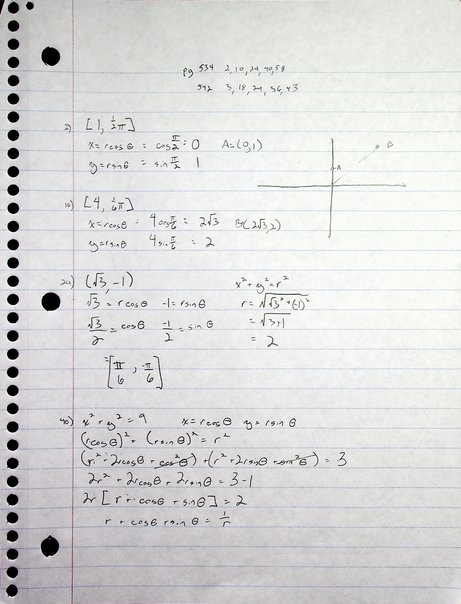 pg 534 2, 10, 24, 40, 58
542 3, 18, 24, 36, 43
2) [1, ½π]
x = rcosθ = cos π/2 = 0 A = (0,1)
y = rsinθ = sin π/2 1
A B
10) [4, 1/6π]
x = rcosθ = 4cos π/6 = 2√3 B(2√3,2)
y = rsinθ 4sin π/6 = 2
24) (√3, -1) x² + y² = r²
√3 = r cosθ -1 = r sinθ r = √(√3² + (-1)²)
√3/2 = cosθ -1/2 = sinθ = √(3+1)
= 2
= [π/6, -π/6]
40) x² + y² = 9 x = rcosθ y = rsinθ
(rcosθ)² + (rsinθ)² = r²
(r² + 2rcosθ + cos²θ) + (r² + 2rsinθ + sin²θ) = 3
2r² + 2rcosθ + 2rsinθ = 3-1
2r [r + cosθ + sinθ] = 2
r + cosθ + sinθ = 1/r